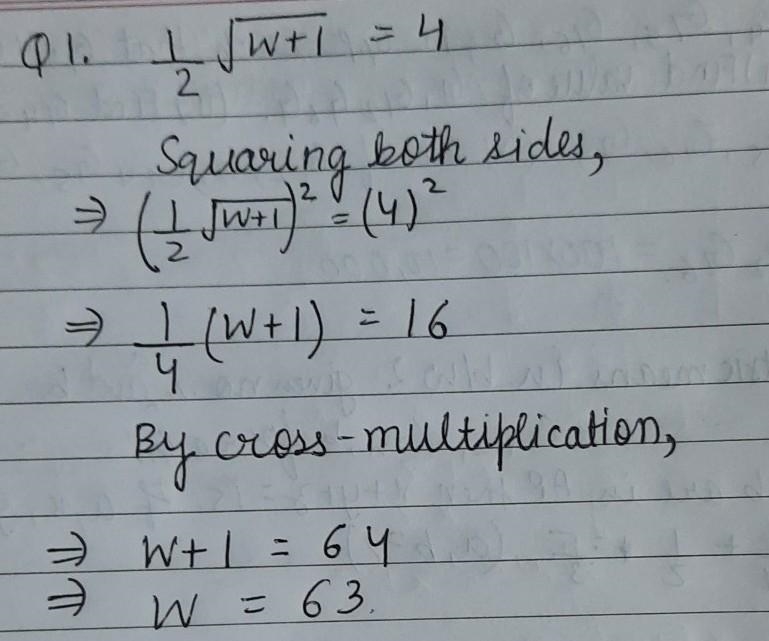 Q1. 1/2 √(w+1) = 4
Squaring both sides,
⇒ (1/2 √(w+1))² = (4)²
⇒ 1/4 (w+1) = 16
By cross-multiplication,
⇒ w+1 = 64
⇒ w = 63.